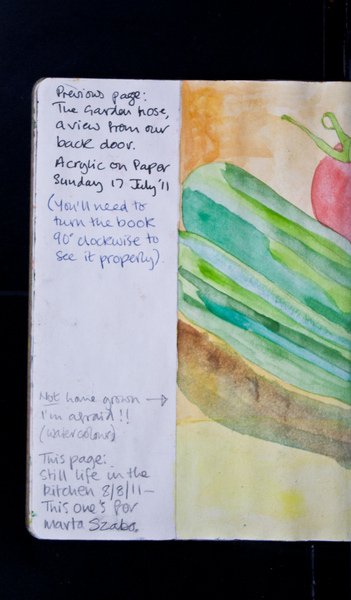 Previous page:
The Garden hose,
a view from our
back door.
Acrylic on Paper
Sunday 17 July '11
(You'll need to
turn the book
90° clockwise to
see it properly).
Not home grown →
I'm afraid!!
(watercolour)
This page:
Still life in the
kitchen 8/8/11 –
This one's for
Marta Szabo.